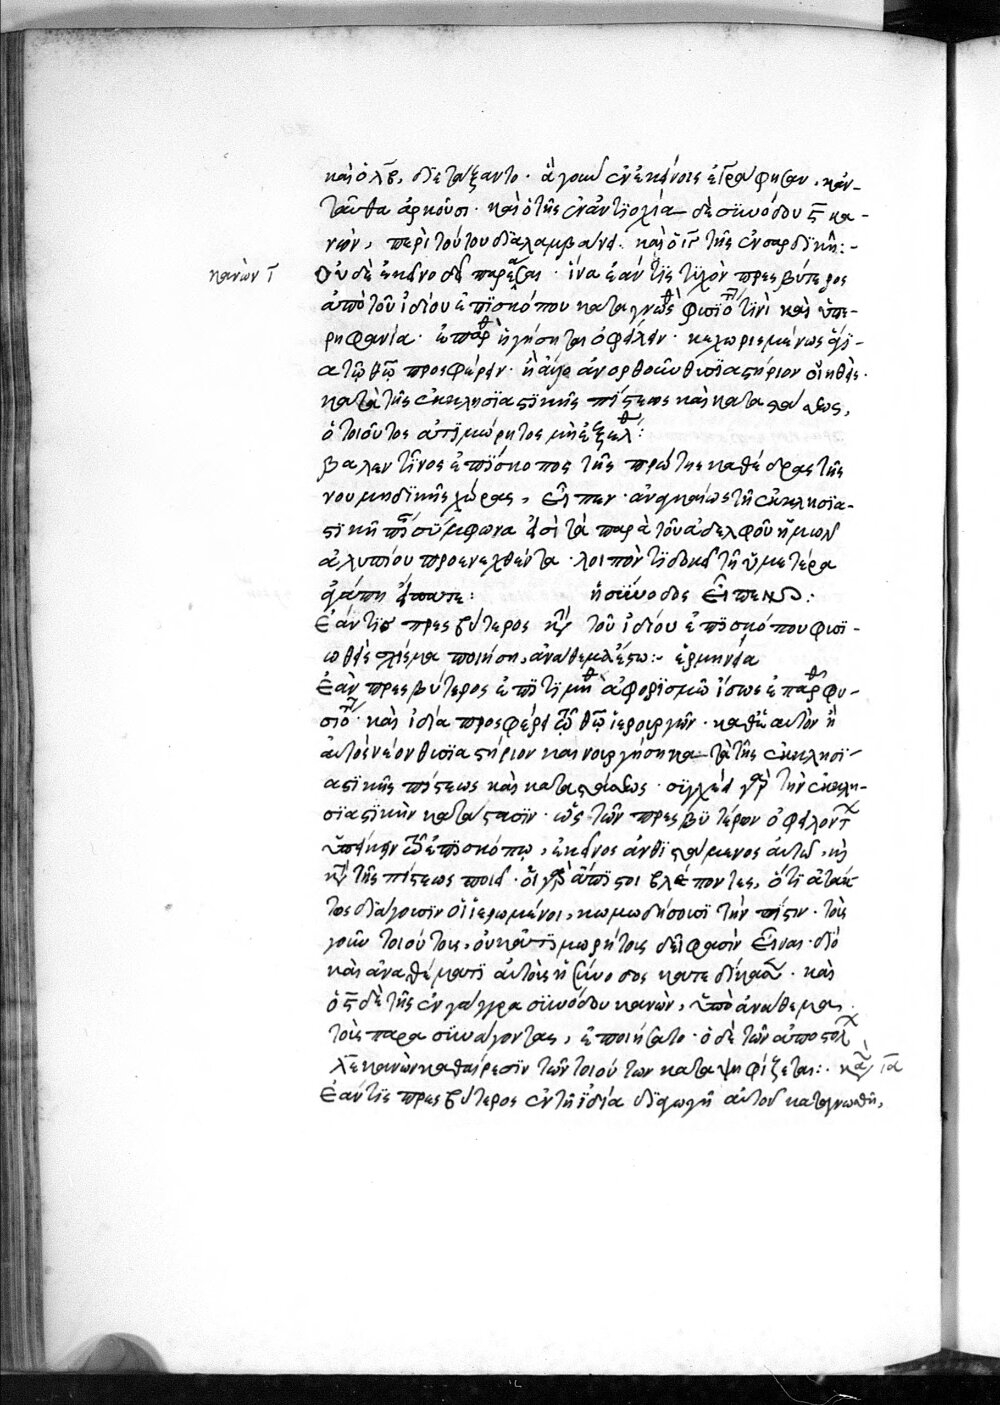 καὶ ὁ λβ, διετάξαντο· ἃ γοῦν ἐν ἐκείνοις ἐγράφησαν, κἀν-
ταῦθα ἀρκοῦσι· καὶ ὁ τῆς ἐν ἀντιοχία δὲ συνόδου ϛ κα-
νών, περὶ τούτου διαλαμβάνει· καὶ ὁ ιγ τῆς ἐν σαρδικῆ:-
κανὼν ι
Οὐδὲ ἐκεῖνο δεῖ παρεᾶσαι· ἵνα ἐάν τις τυχὸν πρεσβύτερος
ἀπὸ τοῦ ἰδίου ἐπισκόπου καταγνωσθεὶς φυσιότητι καὶ ὑπε-
ρηφανία· ἐπαρθεὶς ἡγήσηται ὀφείλειν· κεχωρισμένως ἅγι-
α τῶ θῶ προσφέρειν· ἢ ἄλλο ἀνορθοῦν θυσιαστήριον οἰηθείη·
κατὰ τῆς ἐκκλησιαστικῆς πίστεως καὶ καταστάσεως,
ὁ τοιοῦτος ἀτιμώρητος μὴ ἐξελθ:
βαλεντῖνος ἐπίσκοπος τῆς πρώτης καθέδρας τῆς
νουμηδικῆς χώρας, εἶπεν· ἀναγκαίως τῆ ἐκκλησια-
στικῆ πίστει σύμφωνα εἰσὶ τὰ παρὰ τοῦ ἀδελφοῦ ἡμῶν
ἀλυπίου προενεχθέντα· λοιπὸν τί δοκεῖ τῆ ὑμετέρα
ἀγάπη εἴπατε: ἡ σύνοδος εἶπεν:
Ἐάν τις πρεσβύτερος κατὰ τοῦ ἰδίου ἐπισκόπου φυσι-
ωθεὶς σχίσμα ποιήση, ἀνάθεμα ἔστω:- ἑρμηνεία
Ἐὰν πρεσβύτερος ἐπιτιμηθεὶς ἀφορισμῶ ἴσως ἐπαρθῆ φυ-
σιότητι· καὶ ἰδία προσφέρει τῶ θῶ ἱερουργῶν· καθ' ἑαυτὸν ἢ
αὐτὸς νέον θυσιαστήριον καινουργήση κατὰ τῆς ἐκκλησι-
αστικῆς πίστεως καὶ καταστάσεως· συγχεῖ γὰρ τὴν ἐκκλη-
σιαστικὴν κατάστασιν· ὡς τῶν πρεσβυτέρων ὀφειλόντων
ὑπείκειν τῶ ἐπισκόπω, ἐκεῖνος ἀνθιστάμενος αὐτῶ, καὶ
κατὰ τῆς πίστεως ποιεῖ· οἱ γὰρ ἄπιστοι βλέποντες, ὅτι ἀτάκ
τως διάγουσιν οἱ ἱερωμένοι, κωμωδήσουσι τὴν πίστιν· τοὺς
γοῦν τοιούτους, οὐκ ἀτιμωρήτους δεῖ φασὶν εἶναι· διὸ
καὶ ἀναθέματι αὐτοὺς ἡ σύνοδος κατεδίκασε· καὶ
ὁ ϛ δὲ τῆς ἐν γάγγρα συνόδου κανὼν, ὑπὸ ἀνάθεμα
τοὺς παρασυνάγοντας, ἐποιήσατο· ὁ δὲ τῶν ἀποστόλων
λε κανὼν καθαίρεσιν τῶν τοιούτων καταψηφίζεται:· κανὼν ια
Ἐάν τις πρεσβύτερος ἐν τῆ ἰδία διαγωγῆ αὐτοῦ καταγνωσθῆ,